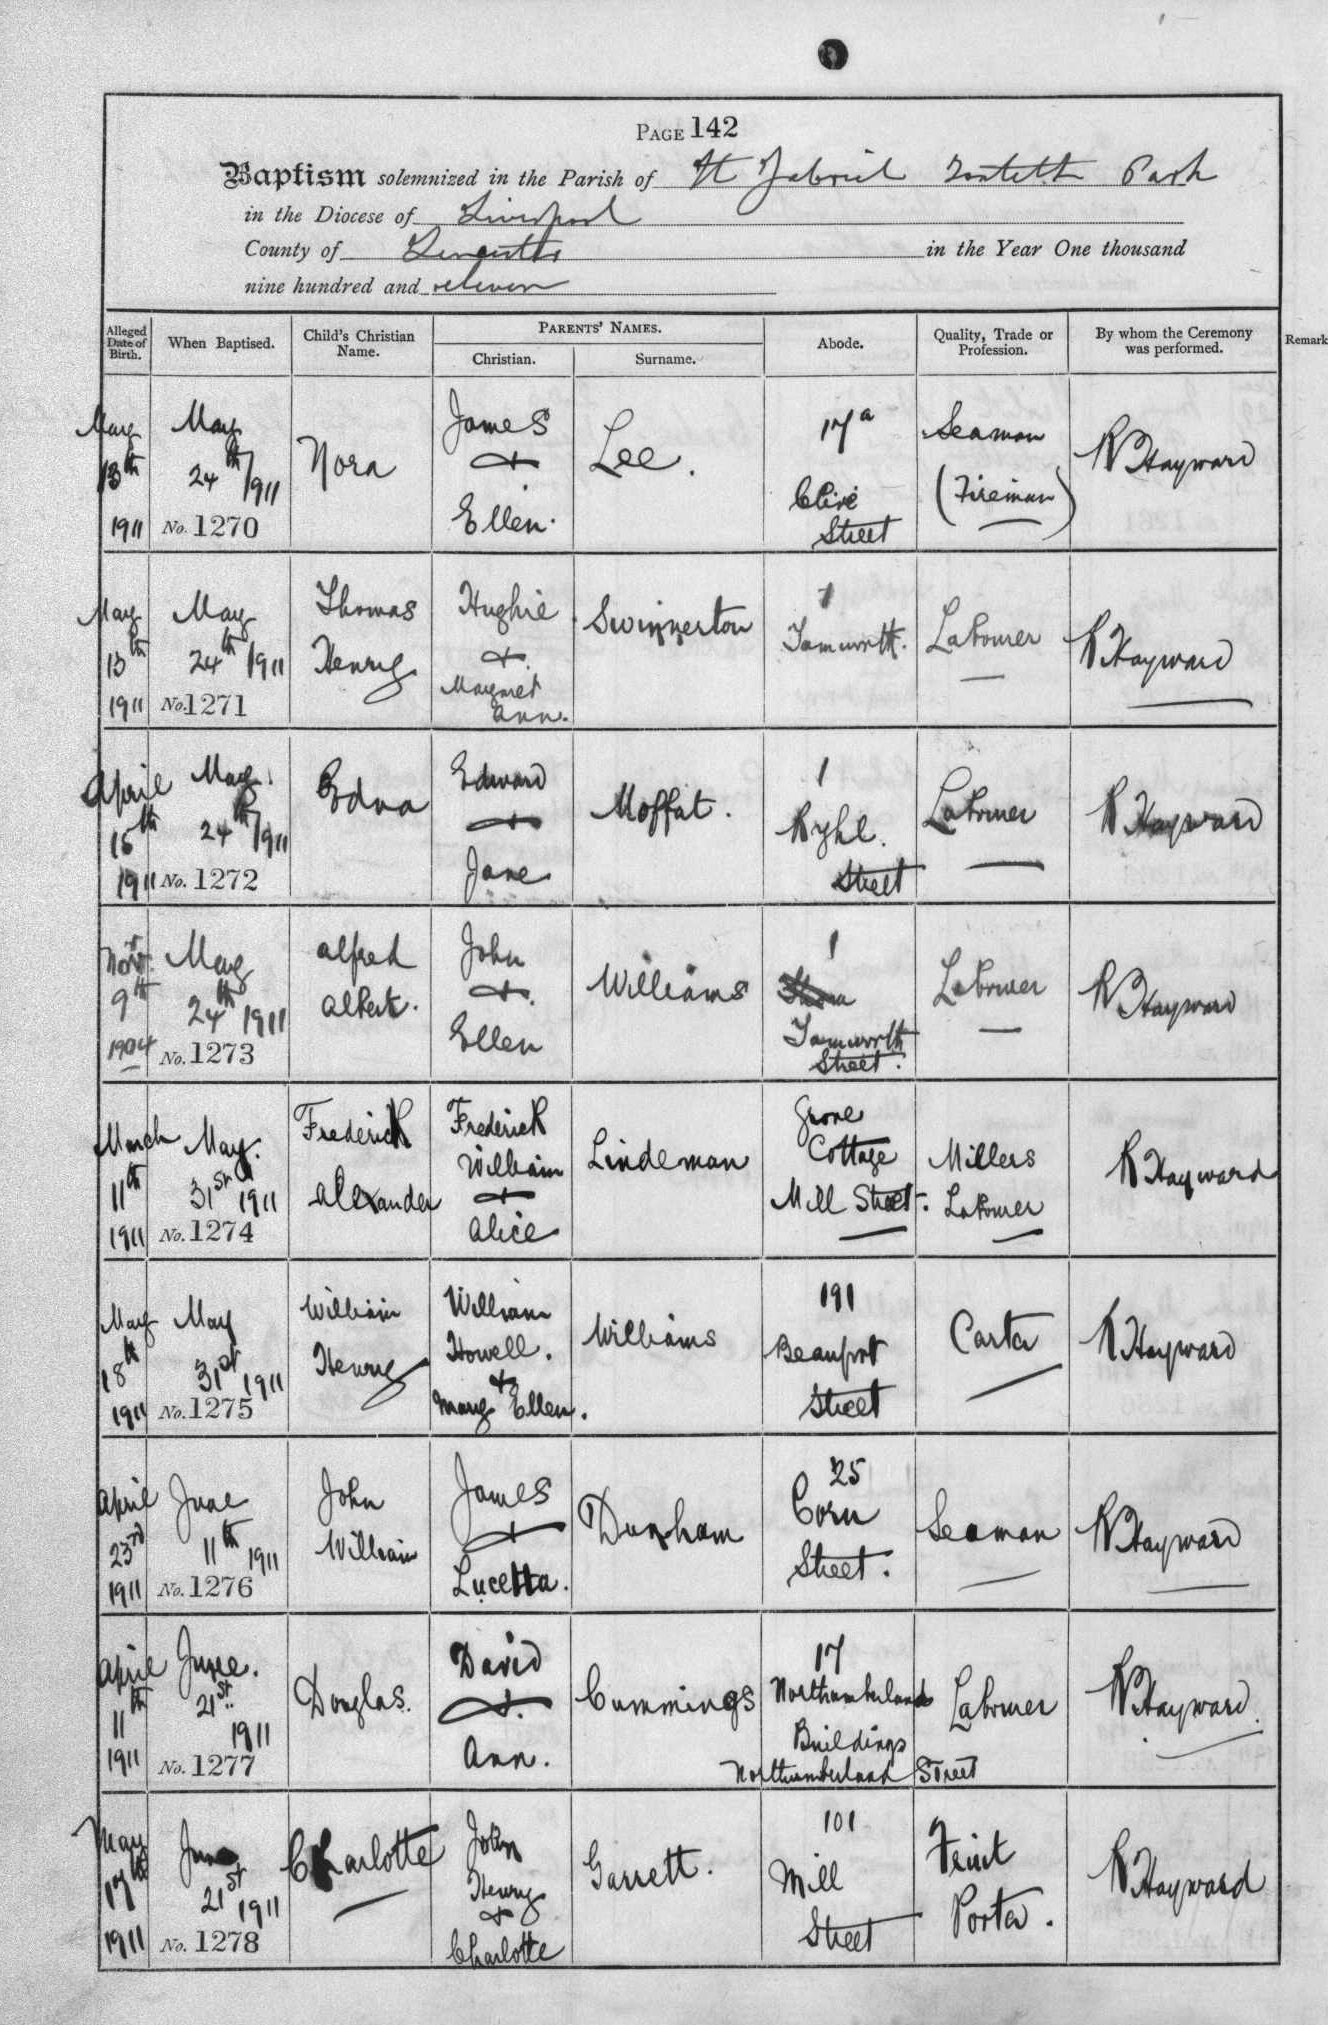 PAGE 142
Baptism solemnized in the Parish of St Gabriel Toxteth Park
in the Diocese of Liverpool
County of Lancaster in the Year One thousand
nine hundred and eleven
Alleged Date of Birth.
When Baptised.
Child's Christian Name.
PARENTS' NAMES.
Christian.
Surname.
Abode.
Quality, Trade or Profession.
By whom the Ceremony was performed.
Remark
May 13th 1911
May 24th 1911
No. 1270
Nora
James + Ellen.
Lee.
17a Clive Street
Seaman (Fireman)
R Hayward
May 13th 1911
May 24th 1911
No. 1271
Thomas Henry
Hughie + Margaret Ann.
Swinnerton
1 Tamworth.
Labourer
R Hayward
April 15th 1911
May 24th 1911
No. 1272
Edna
Edward + Jane
Moffat.
1 Ryhl. Street
Labourer
R Hayward
Novr. 9th 1904
May 24th 1911
No. 1273
Alfred Albert.
John + Ellen
Williams
1 Tamworth Street.
Labourer
R Hayward
March 11th 1911
May. 31st 1911
No. 1274
Frederick Alexander
Frederick William + Alice
Lindeman
Grove Cottage Mill Street.
Millers Labourer
R Hayward
May 18th 1911
May 31st 1911
No. 1275
William Henry
William Howell. + Mary Ellen.
Williams
191 Beaufort Street
Carter
R Hayward
April 23rd 1911
June 11th 1911
No. 1276
John William
James + Lucetta.
Dunham
25 Corn Street.
Seaman
R Hayward
April 11th 1911
June. 21st 1911
No. 1277
Douglas.
David + Ann.
Cummings
17 Northumberland Buildings Northumberland Street
Labourer
R Hayward.
May 17th 1911
June 21st 1911
No. 1278
Charlotte
John Henry + Charlotte
Garrett.
101 Mill Street
Fruit Porter.
R Hayward